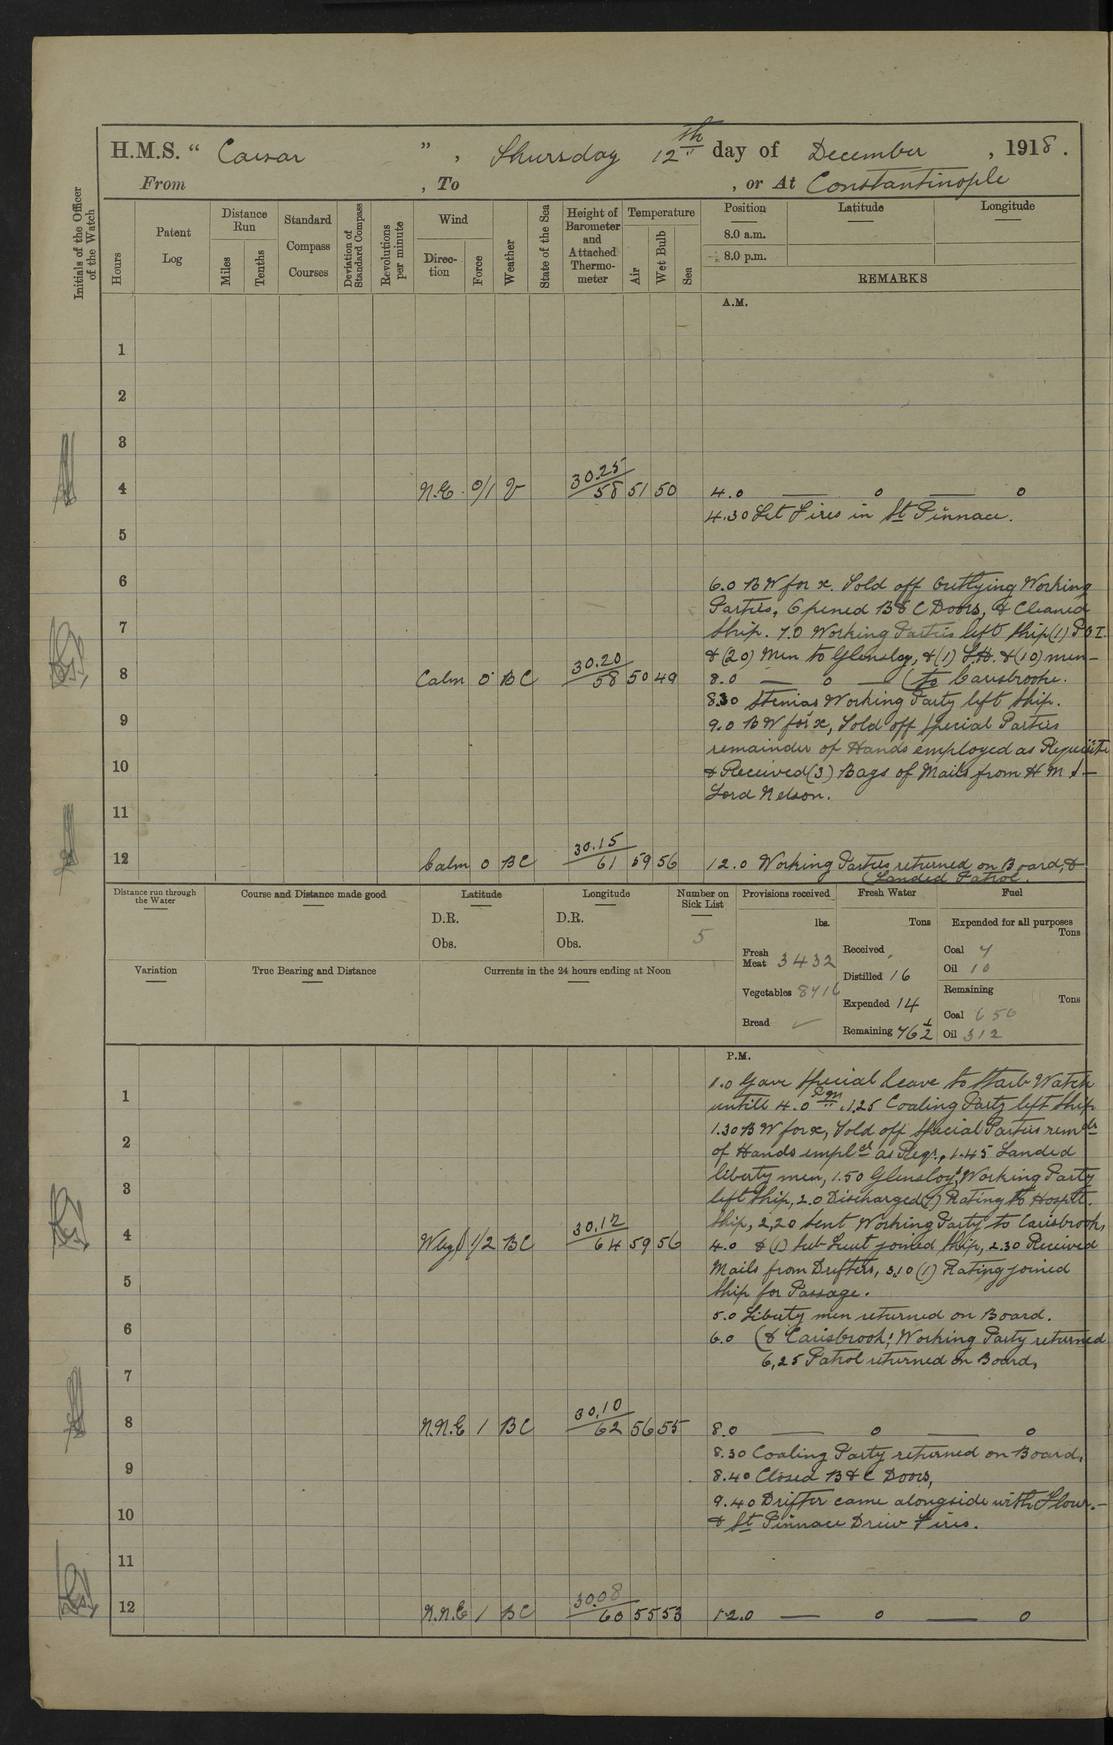 H.M.S. “ Caesar ”, Thursday 12th day of December, 1918.
From , To , or At Constantinople
Initials of the Officer of the Watch
Hours
Patent Log
Distance Run
Miles
Tenths
Standard Compass Courses
Deviation of Standard Compass
Revolutions per minute
Wind
Direc-tion
Force
Weather
State of the Sea
Height of Barometer and Attached Thermo-meter
Temperature
Air
Wet Bulb
Sea
Position Latitude Longitude
8.0 a.m.
8.0 p.m.
REMARKS
A.M.
1
2
3
4 N.E. 0/1 V 30.25/58 51 50 4.0 — o — o
4.30 Lit Fires in St Pinnace.
5
6 6.0 B W for x. Told off Outlying Working
Parties, Opened B & C Doors, & Cleaned
7 Ship. 7.0 Working Parties left Ship (1) P O I
& (20) Men to Glensloy, & (1) L.H. & (10) men —
8 Calm 0 B C 30.20/58 50 49 8.0 — o — (to Carisbrooke.
8.30 Stenias Working Party left Ship.
9 9.0 B W for x, Told off Special Parties
remainder of Hands employed as Requisite
10 & Received (3) Bags of Mails from H M S —
Lord Nelson.
11
12 Calm 0 B C 30.15/61 59 56 12.0 Working Parties returned on Board, &
(Landed Patrol.
Distance run through the Water
Course and Distance made good
Latitude
D.R.
Obs.
Longitude
D.R.
Obs.
Number on Sick List
5
Variation
True Bearing and Distance
Currents in the 24 hours ending at Noon
Provisions received
lbs.
Fresh Meat 3432
Vegetables 8716
Bread
Fresh Water
Tons
Received
Distilled 16
Expended 14
Remaining 76½
Fuel
Expended for all purposes
Tons
Coal 7
Oil 10
Remaining
Tons
Coal 650
Oil 312
P.M.
1.0 Gave Special Leave to Starb Watch
1 untill 4.0 PM. 1.25 Coaling Party left Ship
1.30 B W for x, Told off Special Parties remdr
2 of Hands empled as Reqr., 1.45 Landed
liberty men, 1.50 Glensloy's Working Party
3 left Ship, 2.0 Discharged (7) Rating to Hospitl.
Ship, 2,20 Sent Working Party to Carisbrook,
4 Wly 1/2 B C 30.12/64 59 56 4.0 & (1) Sub Lieut joined Ship, 2.30 Received
Mails from Drifters, 3,10 (1) Rating joined
5 Ship for Passage.
5.0 Liberty men returned on Board.
6 6.0 (& Carisbrook's Working Party returned
6,25 Patrol returned on Board,
7
8 N.N.E 1 B C 30.10/62 56 55 8.0 — o — o
8.30 Coaling Party returned on Board,
9 8.40 Closed B & C Doors,
9.40 Drifter came alongside with Flour. —
10 & St Pinnace Drew Fires.
11
12 N.N.E 1 B C 30.08/60 55 53 12.0 — o — o